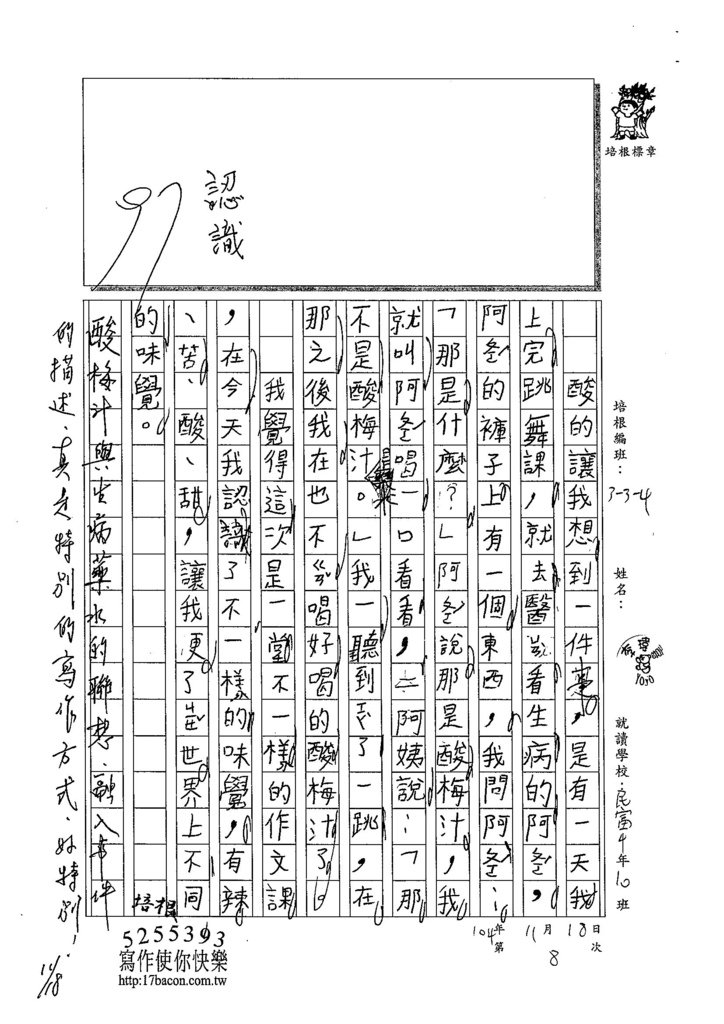 培根標章
認識
97
培根編班：3-3-4
姓名：
就讀學校：民富4年10班
104年11月18日
第8次
酸的讓我想到一件事，是有一天我
上完跳舞課，就去醫院看生病的阿爸，
阿爸的褲子上有一個東西，我問阿爸：
「那是什麼？」阿爸說那是酸梅汁，我
就叫阿爸喝一口看看，阿姨說：「那
不是酸梅汁。」我一聽到了一跳，在
那之後我在也不喝好喝的酸梅汁了。
我覺得這次是一堂不一樣的作文課
，在今天我認識了不一樣的味覺，有辣
、苦、酸、甜，讓我更了世界上不同
的味覺。
酸梅汁與生病藥水的聯想，融入事件
的描述，真是特別的寫作方式，好特別！
11/18
培根
5255393
寫作使你快樂
http:17bacon.com.tw